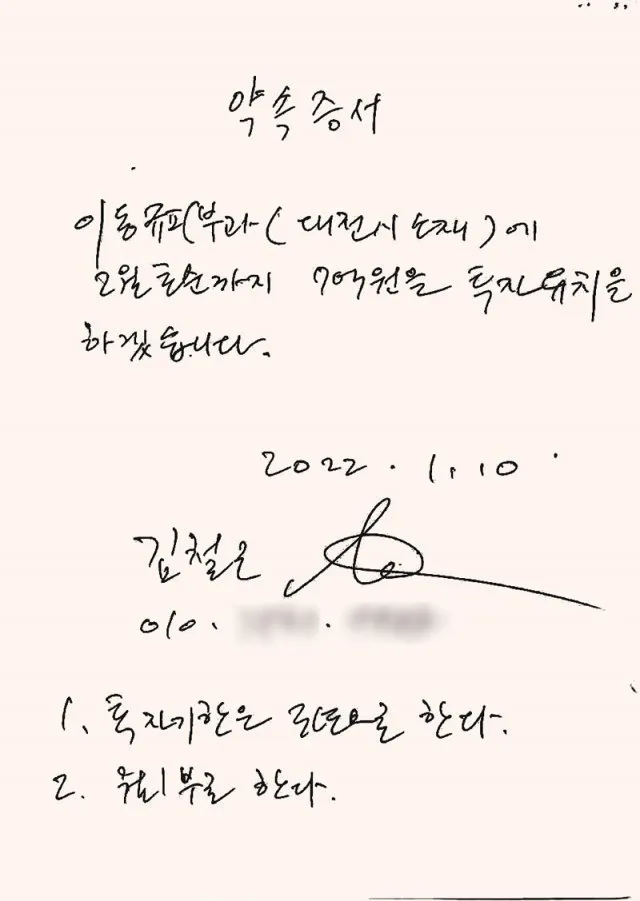 약속증서
이동규피부과(대전시 소재)에
2월초순까지 7억원을 투자유치를
하겠습니다.
2022. 1. 10
김철근
010.
1. 투자기한은 으로 한다.
2. 한다.